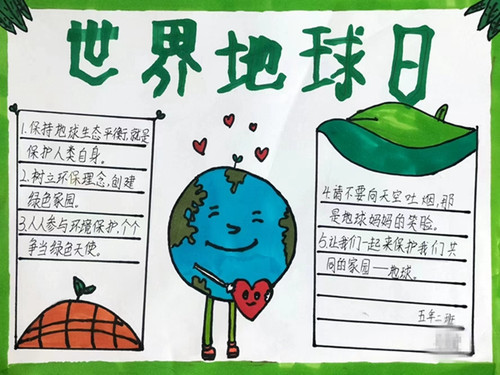 世界地球日
1.保持地球生态平衡,就是
保护人类自身。
2.树立环保理念,创建
绿色家园。
3.人人参与环境保护,个个
争当绿色天使。
4.请不要向天空吐烟,那
是地球妈妈的笑脸。
5.让我们一起来保护我们共
同的家园——地球。
五年二班